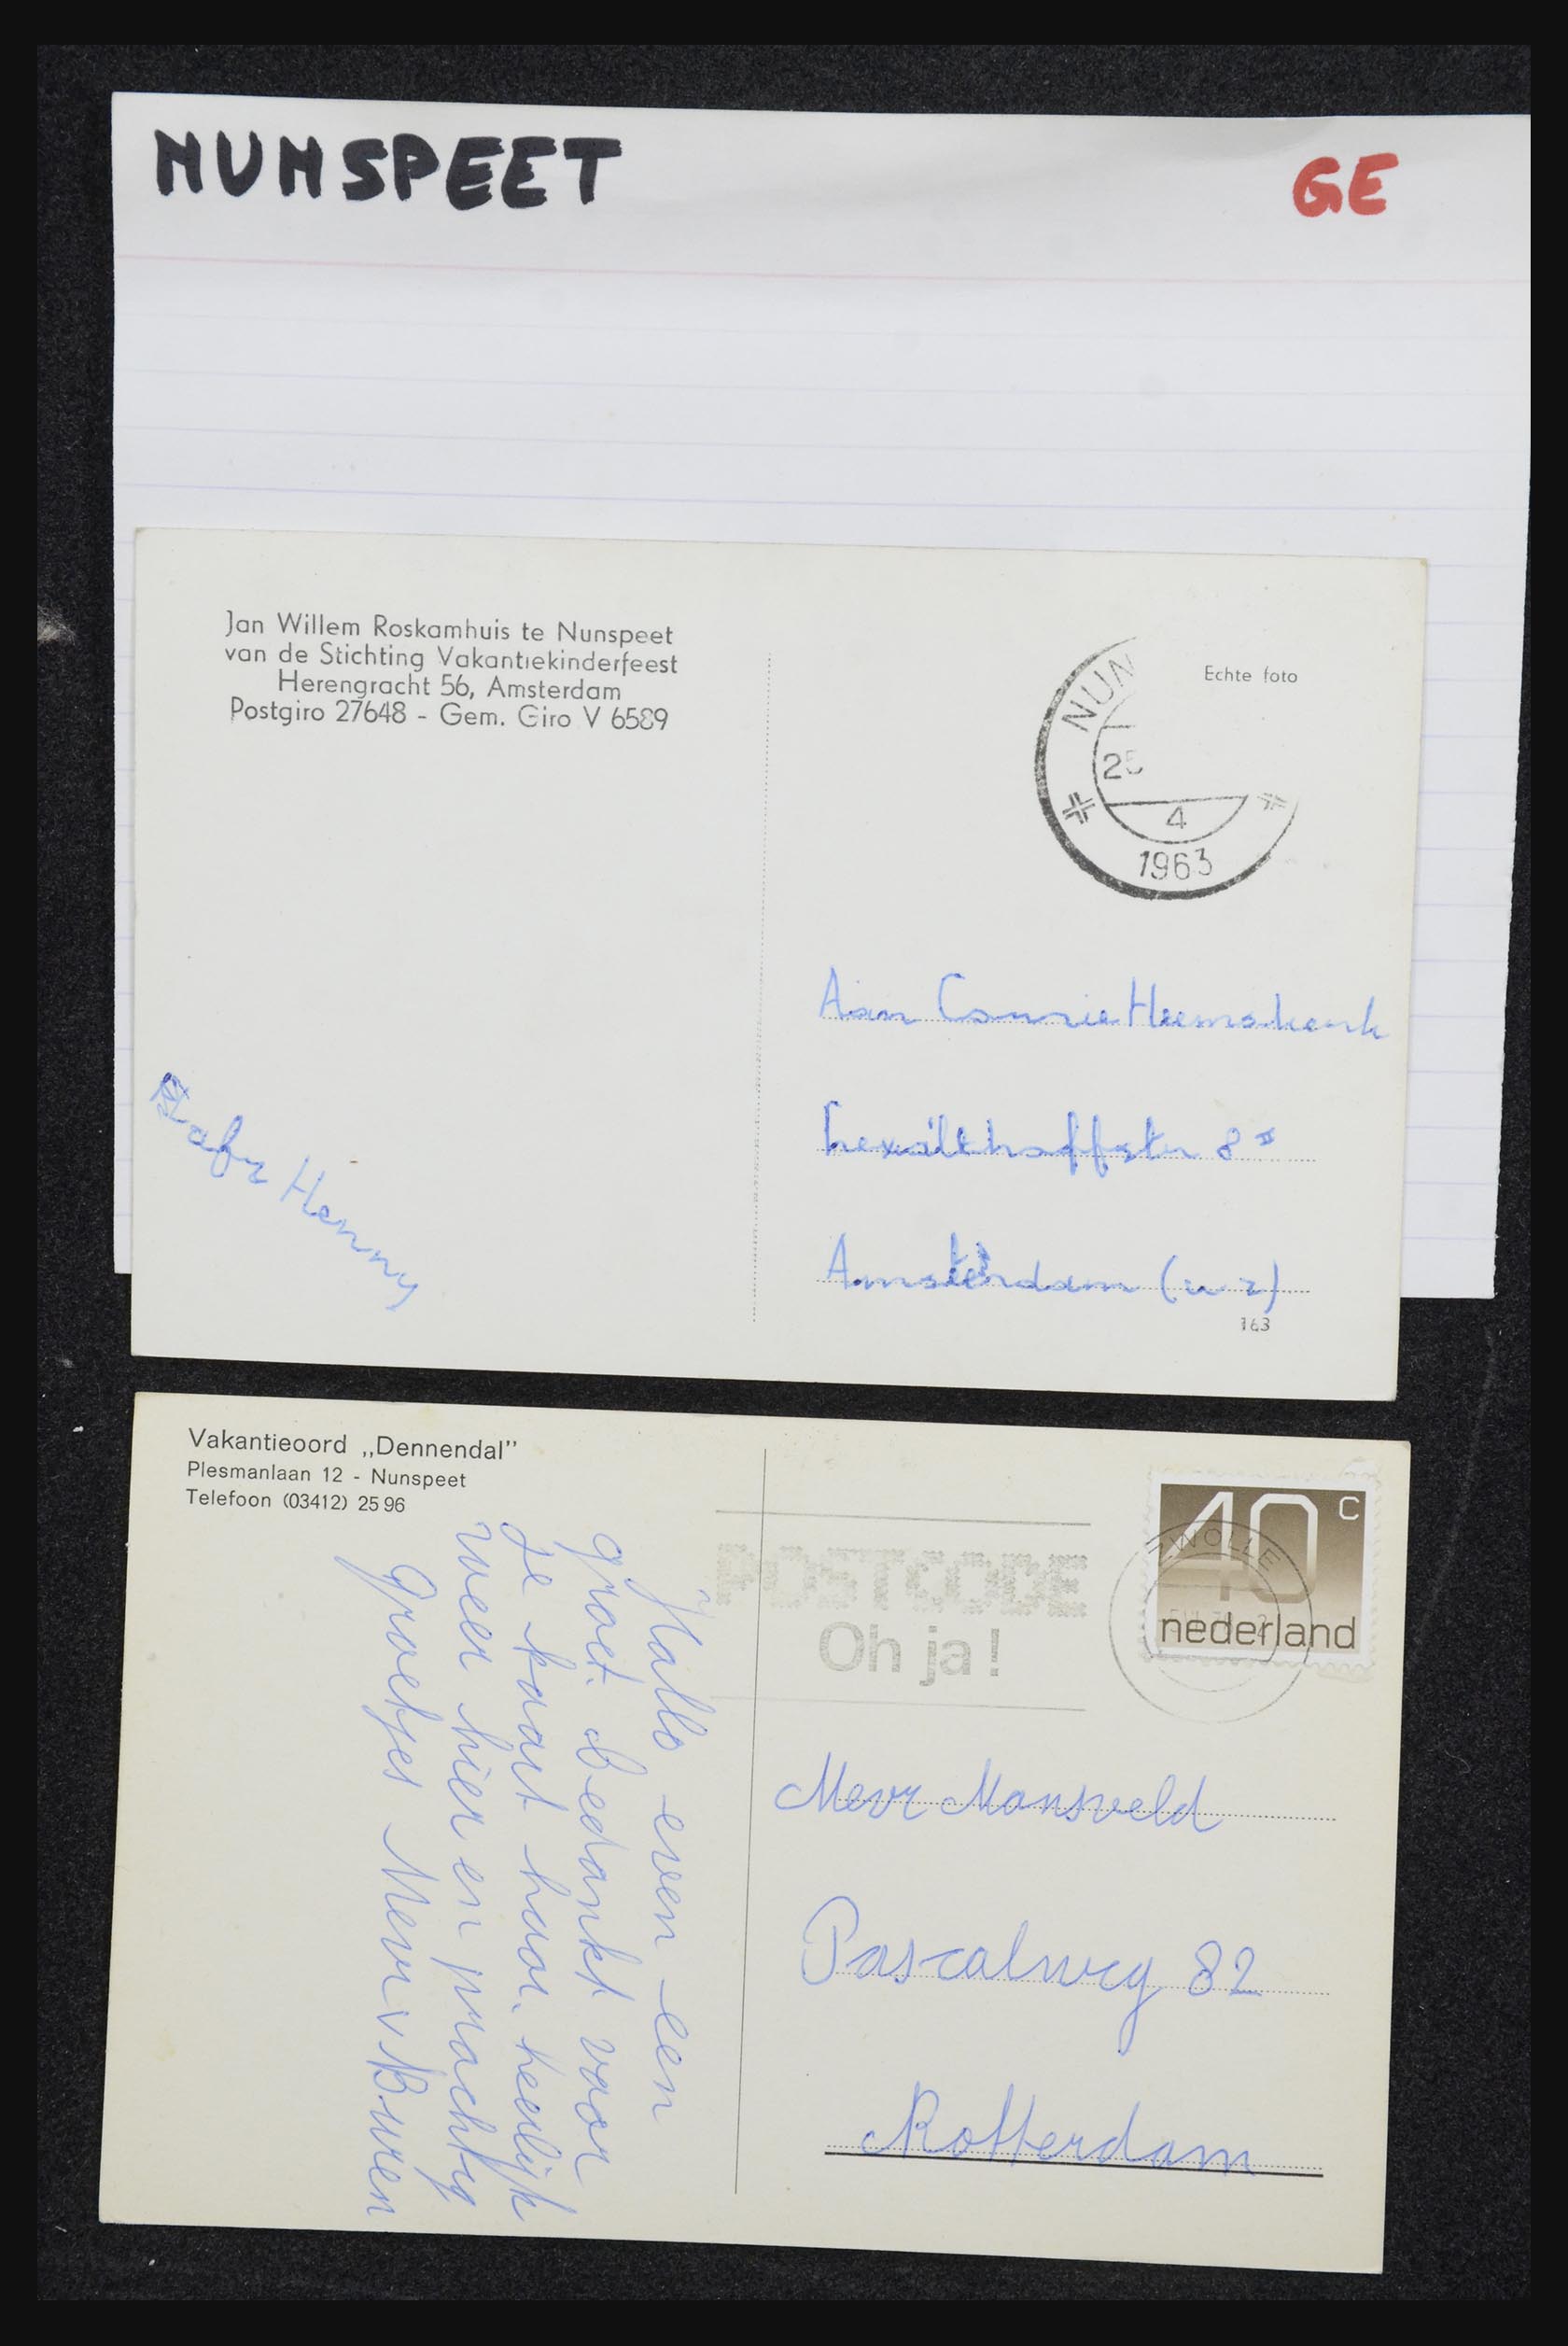 NUNSPEET
GE
Jan Willem Roskamhuis te Nunspeet
van de Stichting Vakantiekinderfeest
Herengracht 56, Amsterdam
Postgiro 27648 - Gem. Giro V 6589
Echte foto
NUN
4
1963
Aan Connie Heemskerk
8
Amsterdam (wz)
163
afz Henny
Vakantieoord „Dennendal”
Plesmanlaan 12 - Nunspeet
Telefoon (03412) 25 96
Hallo even een
groet. bedankt voor
je kaart hoor. heerlijk
weer hier en prachtig
Groetjes Mevr v Buren
POSTCODE
Oh ja!
40 c
nederland
ZWOLLE
Mevr Mansveld
Pascalweg 82
Rotterdam